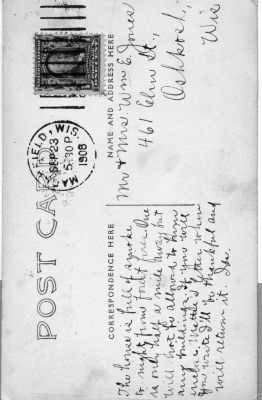 POST CARD
MARSHFIELD, WIS.
SEP 23
5:30 P
1908
CORRESPONDENCE HERE
NAME AND ADDRESS HERE
Mr & Mrs Wm E. Jones
461 Elm St,
Oshkosh,
Wis
The house is full of smoke
to night from forest fires. One
is only half a mile away but
will not be allowed to burn
any farms. If you will
Mattie's letter when
you write I'll be thankful and
will return it. Ida.